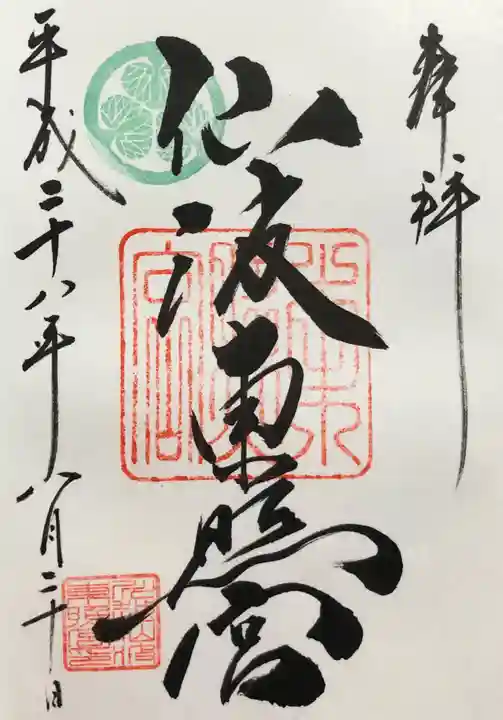 奉拝
仙波東照宮
平成二十八年八月二十日